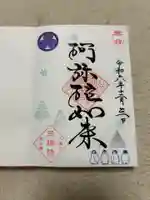 奉拝
令和六年十二月三日
阿弥陀如来